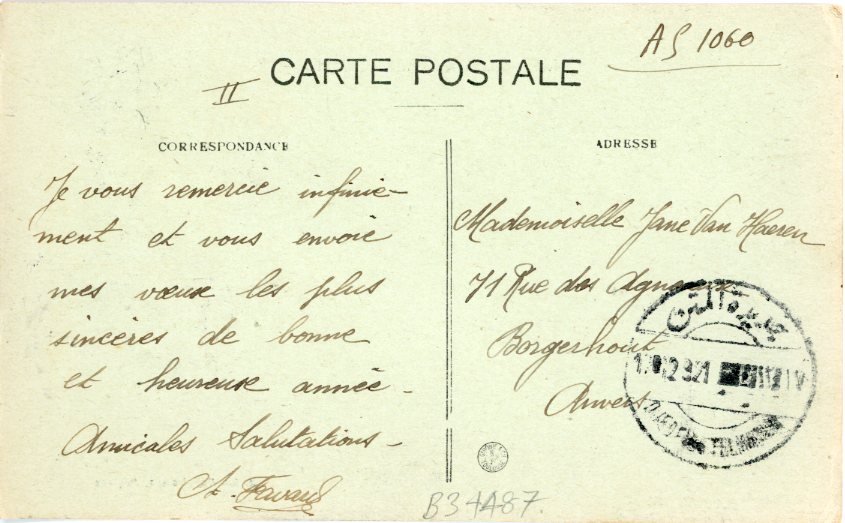 AS 1060
II
CARTE POSTALE
CORRESPONDANCE
ADRESSE
Je vous remercie infinie-
ment et vous envoie
mes vœux les plus
sincères de bonne
et heureuse année -
Amicales Salutations -
Mademoiselle Jane Van Haeren
71 Rue des
Borgerhout
Anvers
B34487.